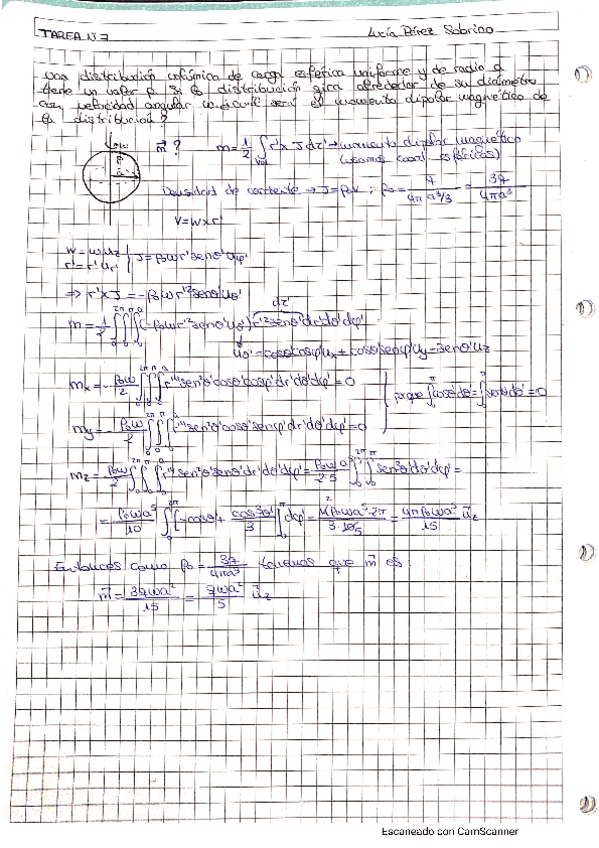 TAREA Nº 7 Lucía Pérez Sobrino
Una distribución volúmica de carga esférica uniforme y de radio a
tiene un valor ρ. Si la distribución gira alrededor de su diámetro
con velocidad angular w ¿cuál será el momento dipolar magnético de
la distribución?
m⃗? m = 1/2 ∫vol r'x J dτ' → momento dipolar magnético
(usamos coord. esféricas)
Densidad de corriente → J = ρ₀v ; ρ₀ = q/(4πa³/3) = 3q/(4πa³)
V = w x r'
w = w uz
r' = r' ur' } J = ρ₀wr' senθ' uφ'
⇒ r' x J = -ρ₀wr'² senθ' uθ'
m = 1/2 ∫₀^2π ∫₀^π ∫₀^a (-ρ₀wr'² senθ' uθ') r'² senθ' dr' dθ' dφ'
dτ'
uθ' = cosθ' cosφ' ux + cosθ' senφ' uy - senθ' uz
mx = -ρ₀w/2 ∫₀^2π ∫₀^π ∫₀^a r'⁴ sen²θ' cosθ' cosφ' dr' dθ' dφ' = 0
my = -ρ₀w/2 ∫₀^2π ∫₀^π ∫₀^a r'⁴ sen²θ' cosθ' senφ' dr' dθ' dφ' = 0
mz = ρ₀w/2 ∫₀^2π ∫₀^π ∫₀^a r'⁴ sen²θ' senθ' dr' dθ' dφ' =
Entonces como ρ₀ = 3q/(4πa³) tenemos que m⃗ es:
m⃗ = 3qwa²/15 = qwa²/5 u⃗z
Escaneado con CamScanner